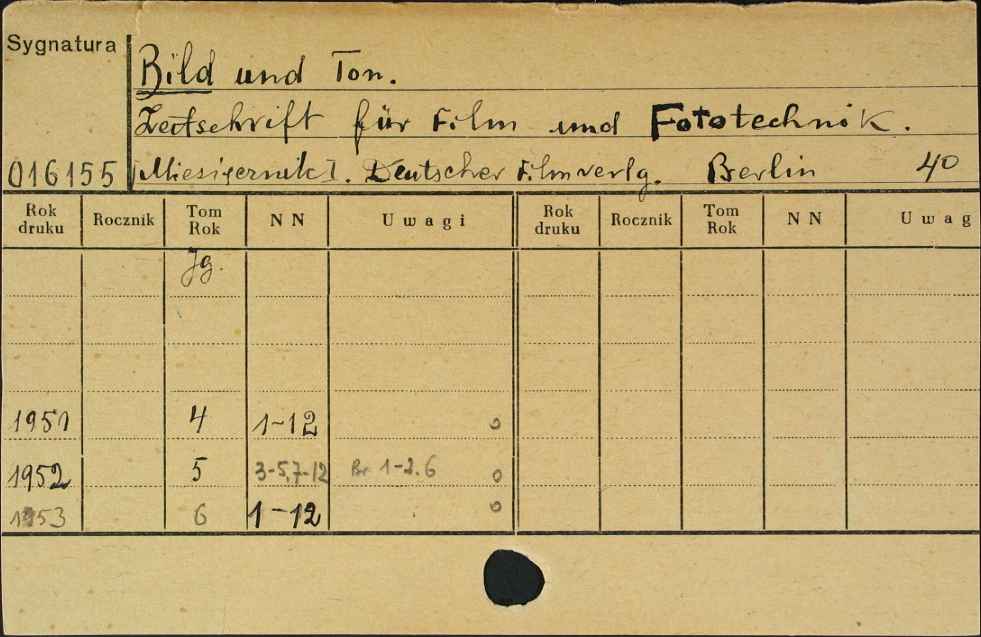 Sygnatura
Bild und Ton.
Zeitschrift für Film und Fototechnik.
016155 [Miesięcznik]. Deutscher Filmverlg. Berlin 4°
Rok druku Rocznik Tom Rok NN Uwagi Rok druku Rocznik Tom Rok NN Uwag
Jg.
1951 4 1-12 o
1952 5 3-5,7-12 Br 1-2.6 o
1953 6 1-12 o